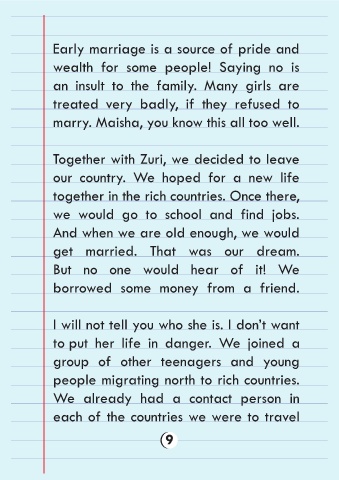 Early marriage is a source of pride and
wealth for some people! Saying no is
an insult to the family. Many girls are
treated very badly, if they refused to
marry. Maisha, you know this all too well.
Together with Zuri, we decided to leave
our country. We hoped for a new life
together in the rich countries. Once there,
we would go to school and find jobs.
And when we are old enough, we would
get married. That was our dream.
But no one would hear of it! We
borrowed some money from a friend.
I will not tell you who she is. I don't want
to put her life in danger. We joined a
group of other teenagers and young
people migrating north to rich countries.
We already had a contact person in
each of the countries we were to travel
9